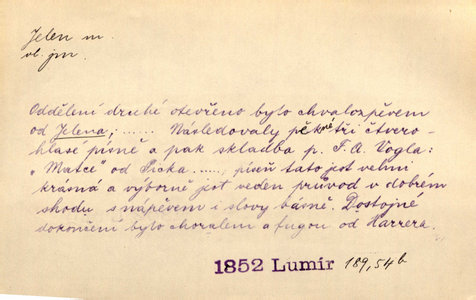 Jelen m.
vl. jm.
Oddělení druhé otevřeno bylo chvalozpěvem
od Jelena; ...... Následovaly pěkné tři čtvero-
hlasé písně a pak skladba p. F. A. Vogla:
„Matce" od Picka ......, píseň tato jest velmi
krásná a výborně jest veden průvod v dobrém
shodu s nápěvem i slovy básně. Dostojné
dokončení bylo choralem a fugou od Harrera.
1852 Lumír 189,54b